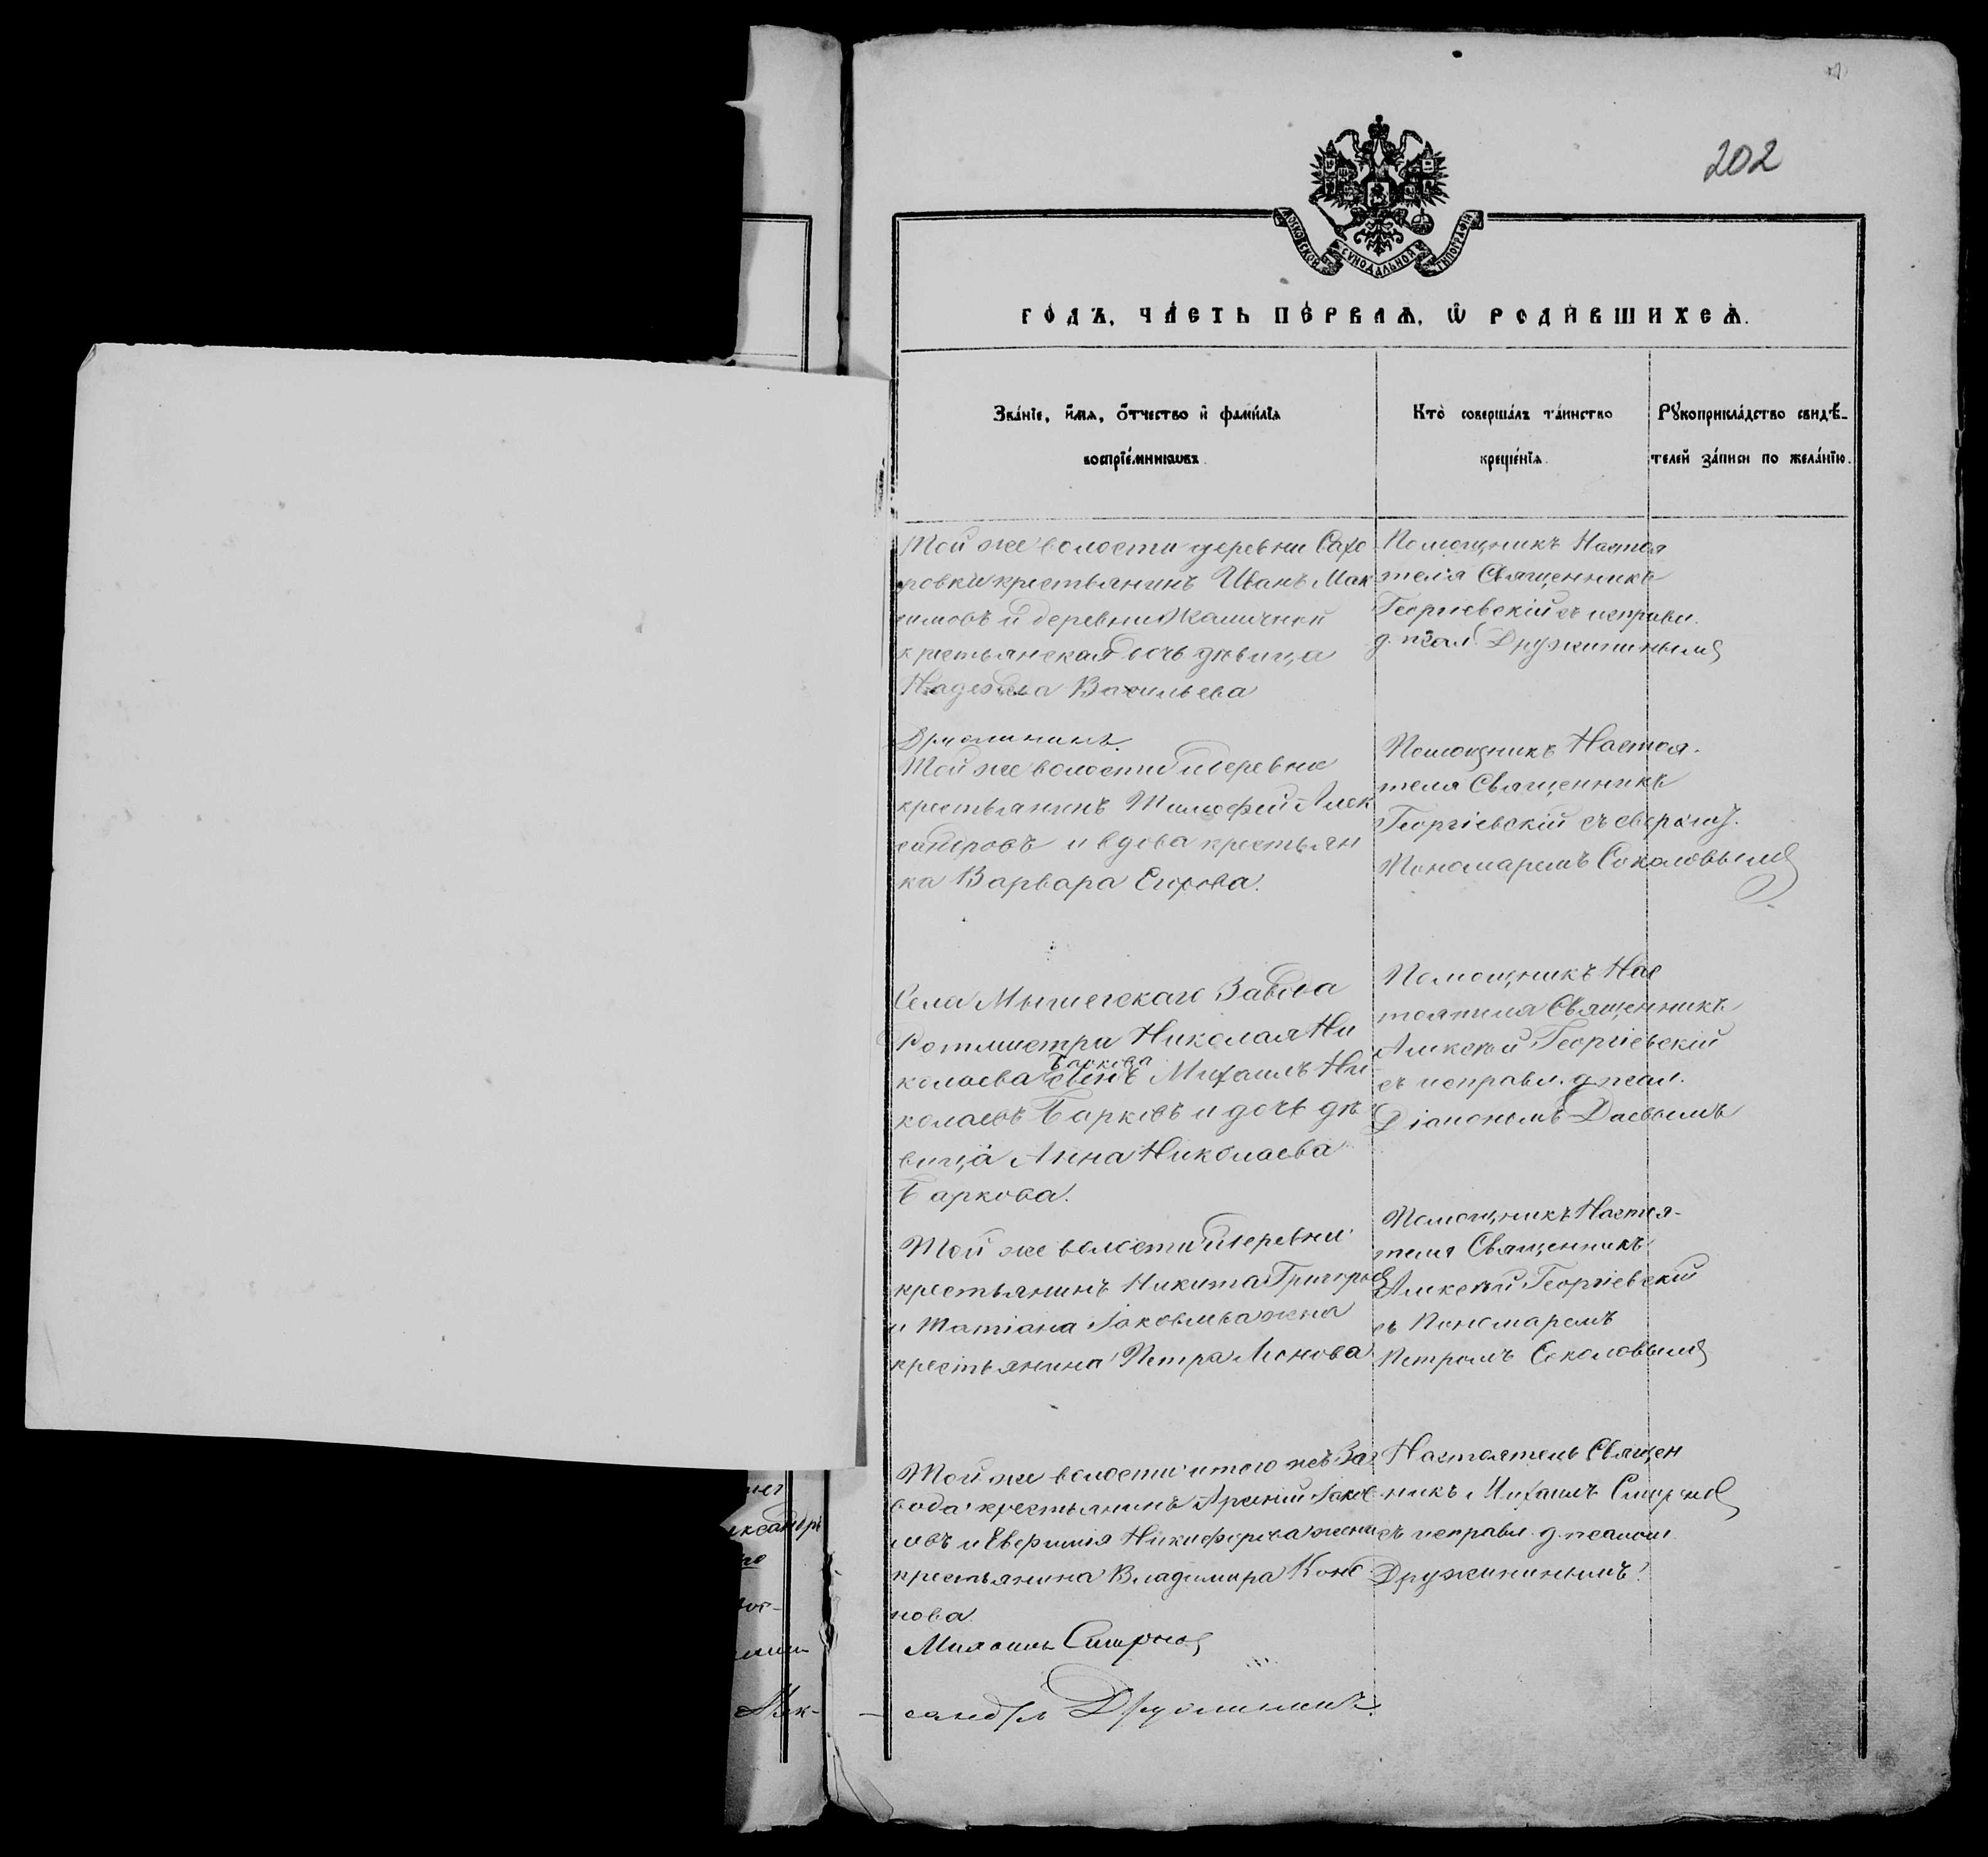 202
МОСКОВСКОЙ СѴНОДАЛЬНОЙ ТИПОГРАФІИ
го́дъ, ча́сть пе́рваѧ, ѡ҆ роди́вшихсѧ.
Зва́нїе, и҆́мѧ, ѻ҆́тчество и҆ фами́лїѧ
воспрїе́мникѡвъ.
Кто̀ соверша́лъ та́инство
креще́нїѧ.
Рꙋкоприкла́дство свидѣ́-
телей за́писи по жела́нїю.
Той же волости деревни Сахо
ровки крестьянинъ Иванъ Мак
симовъ и деревни
крестьянская дочь дѣвица
Надежда Васильева
Помощникъ Настоя
теля Священникъ
Георгіевскій съ исправл.
д. псал. Дружининымъ
Дружининъ.
Той же волости и деревни
крестьянинъ Тимофей Алек
сандровъ и вдова крестьян
ка Варвара Егорова.
Помощникъ Настоя-
теля Священникъ
Георгіевскій съ сверхш.
Пономаремъ Соколовымъ
Села Мышегскаго Завода
Ротмистра Николая Ни
колаева Баркова сынъ Михаилъ Ни
колаевъ Барковъ и дочь дѣ
вица Анна Николаева
Баркова.
Помощникъ Нас
тоятеля Священникъ
Алексѣй Георгіевскій
съ исправл. д. псал.
Діакономъ Даевымъ
Той же волости и деревни
крестьянинъ Никита Григорьев
и Татіана Іаковлева жена
крестьянина Петра Леонова
Помощникъ Настоя-
теля Священникъ
Алексѣй Георгіевскій
съ Пономаремъ
Петромъ Соколовымъ
Той же волости и того же За
вода крестьянинъ Арсеній Іаков
ловъ и Евфимія Никифорова жена
крестьянина Владимира Коно
нова.
Настоятель Священ
никъ Михаилъ Смирнов
съ исправл. д. псалом.
Дружининымъ.
Михаилъ Смирнов
сандръ Дружининъ.
ександръ
Алек-